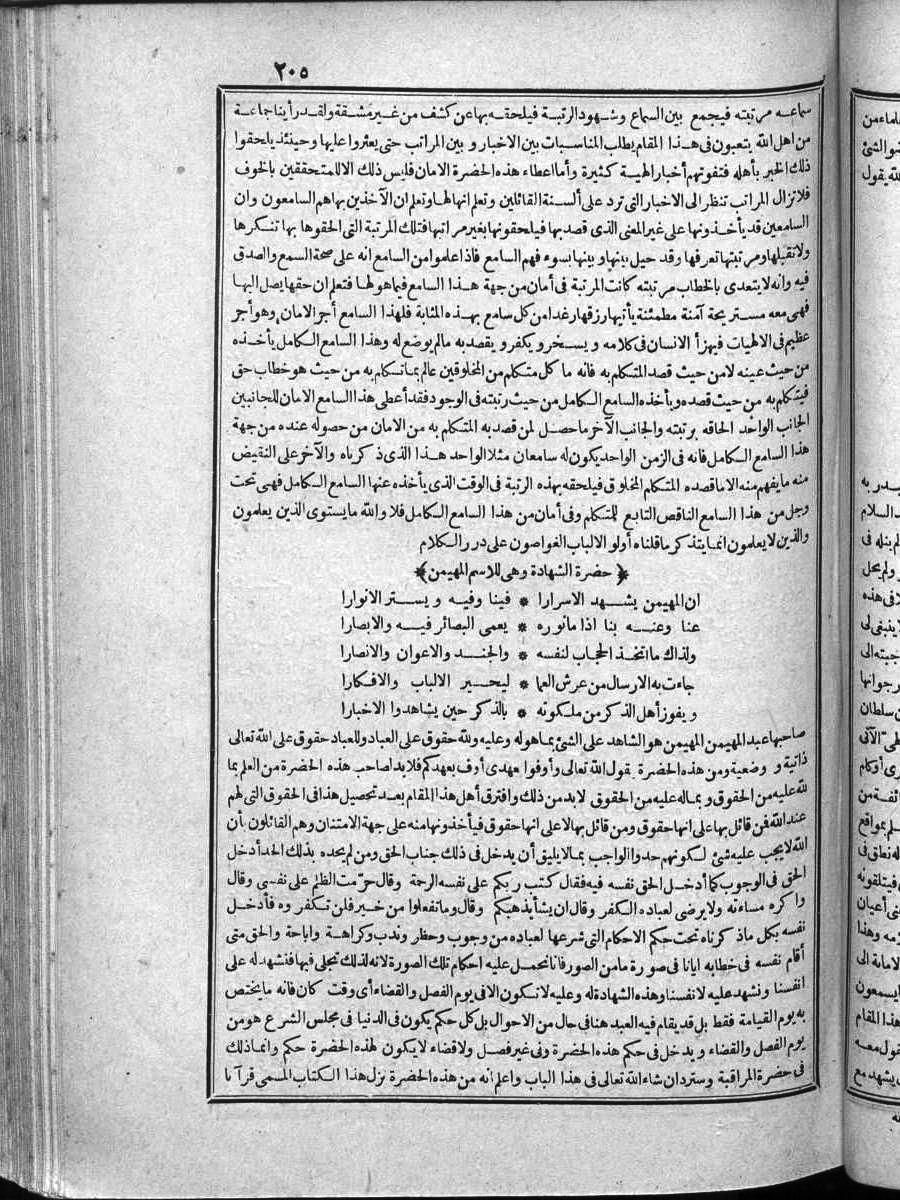 ٢٠٥
سماعه مرتبته فيجمع بين السماع وشهود الرتبة فيلحقه بها عن كشف من غير مشقة ولقد رأينا جماعة
من اهل الله يتعبون فى هذا المقام بطلب المناسبات بين الاخبار و بين المراتب حتى يعثروا عليها وحينئذ يلحقوا
ذلك الخبر بأهله فتفوتهم أخبار الهية كثيرة وأما اعطاء هذه الحضرة الامان فليس ذلك الا للمتحققين بالخوف
فلا تزال المراتب تنظر الى الاخبار التى ترد على ألسنة القائلين وتعلم انها لها وتعلم ان الآخذين بها هم السامعون وان
السامعين قد يأخذونها على غير المعنى الذى قصد بها فيلحقونها بغير مراتبها فتلك المرتبة التى الحقوها بها تنكرها
ولا تقبلها ومرتبتها تعرفها وقد حيل بينها و بينها بسوء فهم السامع فاذا علموا من السامع انه على صحة السمع والصدق
فيه وانه لا يتعدى بالخطاب مرتبته كانت المرتبة فى أمان من جهة هذا السامع فيما هو لها فتعلم ان حقها يصل اليها
فهى معه مستريحة آمنة مطمئنة يأتيها رزقها رغدا من كل سامع بهذه المثابة فلهذا السامع أجر الامان وهو أجر
عظيم فى الالهيات فيهزأ الانسان فى كلامه و يسخر و يكفر و يقصد به مالم يوضع له وهذا السامع الكامل يأخذه
من حيث عينه لا من حيث قصد المتكلم به فانه ما كل متكلم من المخلوقين عالم بما تكلم به من حيث هو خطاب حق
فيتكلم به من حيث قصده و يأخذه السامع الكامل من حيث رتبته فى الوجود فقد أعطى هذا السامع الامان للجانبين
الجانب الواحد الحاقه برتبته والجانب الآخر ما حصل لمن قصد به المتكلم به من الامان من حصوله عنده من جهة
هذا السامع الكامل فانه فى الزمن الواحد يكون له سامعان مثلا الواحد هذا الذى ذكرناه والآخر على النقيض
منه ما يفهم منه الا ما قصده المتكلم المخلوق فيلحقه بهذه الرتبة فى الوقت الذى يأخذه عنها السامع الكامل فهى تحت
وجل من هذا السامع الناقص التابع للمتكلم وفى أمان من هذا السامع الكامل فلا والله ما يستوى الذين يعلمون
والذين لا يعلمون انما يتذكر ما قلناه أولو الالباب الغواصون على درر الكلام
﴿حضرة الشهادة وهى للاسم المهيمن﴾
ان المهيمن يشهد الاسرارا * فينا وفيه و يستر الانوارا
عنا وعنه بنا اذا ما نوره * يعمى البصائر فيه والابصارا
ولذاك ما اتخذ الحجاب لنفسه * والجند والاعوان والانصارا
جاءت به الارسال من عرش العما * ليحير الالباب والافكارا
و يفوز أهل الذكر من ملكوته * بالذكر حين يشاهدوا الاخبارا
صاحبها عبد المهيمن المهيمن هو الشاهد على الشئ بما هو له وعليه ولله حقوق على العباد وللعباد حقوق على الله تعالى
ذاتية و وضعية ومن هذه الحضرة يقول الله تعالى وأوفوا بعهدى أوف بعهدكم فلا بد لصاحب هذه الحضرة من العلم بما
لله عليه من الحقوق و بما له عليه من الحقوق لا بد من ذلك وافترق أهل هذا المقام بعد تحصيل هذا فى الحقوق التى لهم
عند الله فمن قائل بها على انها حقوق ومن قائل بها لا على انها حقوق فيأخذونها منه على جهة الامتنان وهم القائلون بأن
الله لا يجب عليه شئ لكونهم حدوا الواجب بما لا يليق أن يدخل فى ذلك جناب الحق ومن لم يحده بذلك الحد أدخل
الحق فى الوجوب كما أدخل الحق نفسه فيه فقال كتب ربكم على نفسه الرحمة وقال حرّمت الظلم على نفسى وقال
وأكره مساءته ولا يرضى لعباده الكفر وقال ان يشأ يذهبكم وقال وما تفعلوا من خير فلن تكفروه فأدخل
نفسه بكل ما ذكرناه تحت حكم الاحكام التى شرعها لعباده من وجوب وحظر وندب وكراهة واباحة والحق متى
أقام نفسه فى خطابه ايانا فى صورة ما من الصور فانا نحمل عليه احكام تلك الصورة لانه لذلك تجلى فيها فنشهد له على
انفسنا ونشهد عليه لانفسنا وهذه الشهادة له وعليه لا تكون الا فى يوم الفصل والقضاء أى وقت كان فانه ما يختص
به يوم القيامة فقط بل قد يقام فيه العبد هنا فى حال من الاحوال بل كل حكم يكون فى الدنيا فى مجلس الشرع هو من
يوم الفصل والقضاء و يدخل فى حكم هذه الحضرة وفى غير فصل ولا قضاء لا يكون لهذه الحضرة حكم وانما ذلك
فى حضرة المراقبة وستردان شاء الله تعالى فى هذا الباب واعلم انه من هذه الحضرة نزل هذا الكتاب المسمى قرآنا